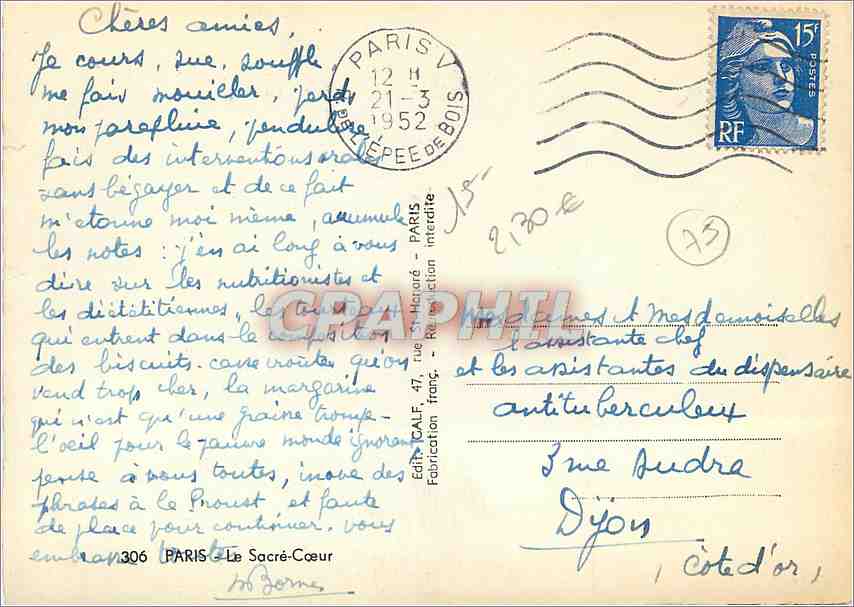 Chères amies,
Je cours, sue, souffle,
me fais mouiller, perds
mon parapluie, pendule,
fais des interventions orales
sans bégayer et de ce fait
m'étonne moi même, accumule
les notes : j'en ai long à vous
dire sur les nutritionistes et
les diététitiennes, les
qui entrent dans la composition
des biscuits-casse croûte qu'on
vend trop cher, la margarine
qui n'est qu'une graisse trompe-
l'oeil pour le pauvre monde ignorant
pense à vous toutes, innove des
phrases à le Proust, et faute
de place pour continuer, vous
embrasse toutes
M Borne
306 PARIS - Le Sacré-Cœur
PARIS V
12 H
21-3
1952
R. DE L'ÉPÉE DE BOIS
15F
POSTES
RF
15-
2,30 €
75
Edit. CALF, 47, rue St-Honoré - PARIS
Fabrication franç. - Reproduction interdite
CPAPHIL
Mesdames et Mesdemoiselles
l'assistante chef
et les assistantes du dispensaire
antituberculeux
3 rue Audra
Dijon
(Côte d'or)